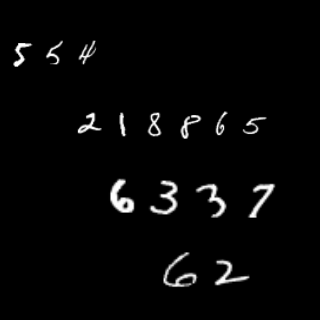 554
218865
6337
62